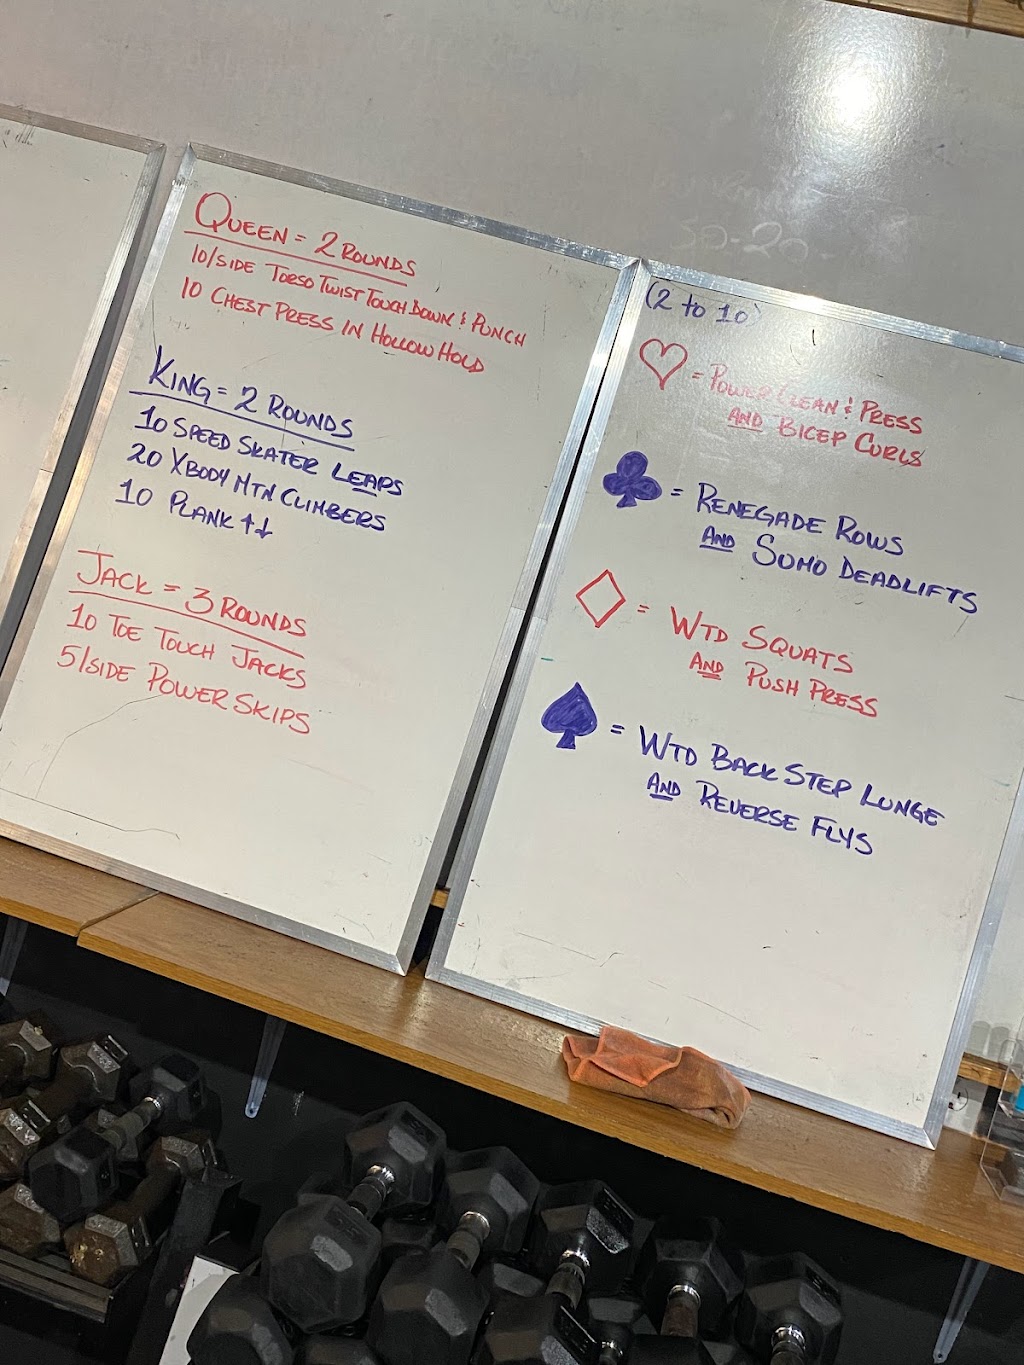 QUEEN = 2 ROUNDS
10/SIDE TORSO TWIST TOUCH DOWN & PUNCH
10 CHEST PRESS IN HOLLOW HOLD
KING = 2 ROUNDS
10 SPEED SKATER LEAPS
20 XBODY MTN CLIMBERS
10 PLANK ↑↓
JACK = 3 ROUNDS
10 TOE TOUCH JACKS
5/SIDE POWER SKIPS
50-20
(2 to 10)
♡ = POWER CLEAN & PRESS
AND BICEP CURLS
♣ = RENEGADE ROWS
AND SUMO DEADLIFTS
♢ = WTD SQUATS
AND PUSH PRESS
♠ = WTD BACK STEP LUNGE
AND REVERSE FLYS